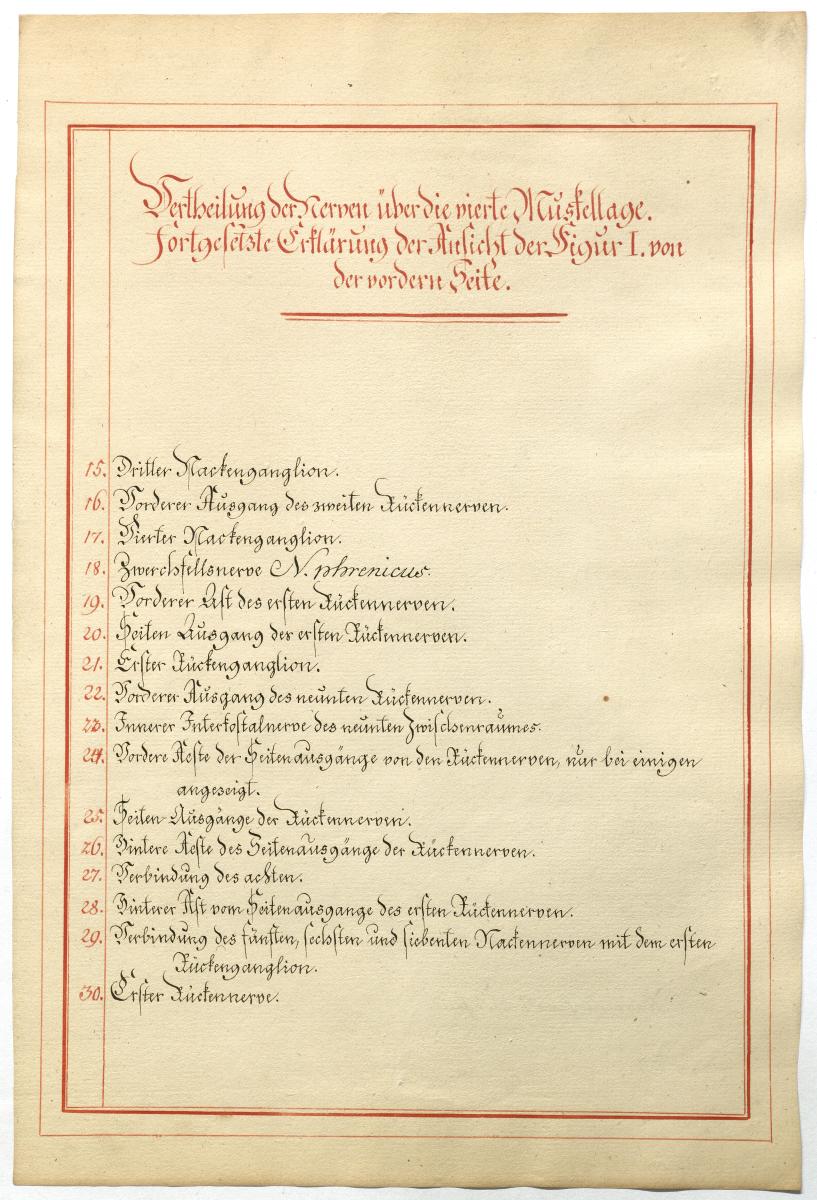 Vertheilung der Nerven über die vierte Muskellage.
Fortgesetzte Erklärung der Ansicht der Figur I. von
der vordern Seite.
15. Dritter Nackenganglion.
16. Vorderer Ausgang des zweiten Rückennerven.
17. Vierter Nackenganglion.
18. Zwerchfellsnerve N. phrenicus.
19. Vorderer Ast des ersten Rückennerven.
20. Seiten Ausgang der ersten Rückennerven.
21. Erster Rückenganglion.
22. Vorderer Ausgang des neunten Rückennerven.
23. Innerer Interkostalnerve des neunten Zwischenraumes.
24. Vordere Aeste der Seitenausgänge von den Rückennerven, nur bei einigen
angezeigt.
25. Seiten-Ausgänge der Rückennerven.
26. Hintere Aeste des Seitenausgänge der Rückennerven.
27. Verbindung des achten.
28. Hinterer Ast vom Seitenausgange des ersten Rückennerven.
29. Verbindung des fünften, sechsten und siebenten Nackennerven mit dem ersten
Rückenganglion.
30. Erster Rückennerve.